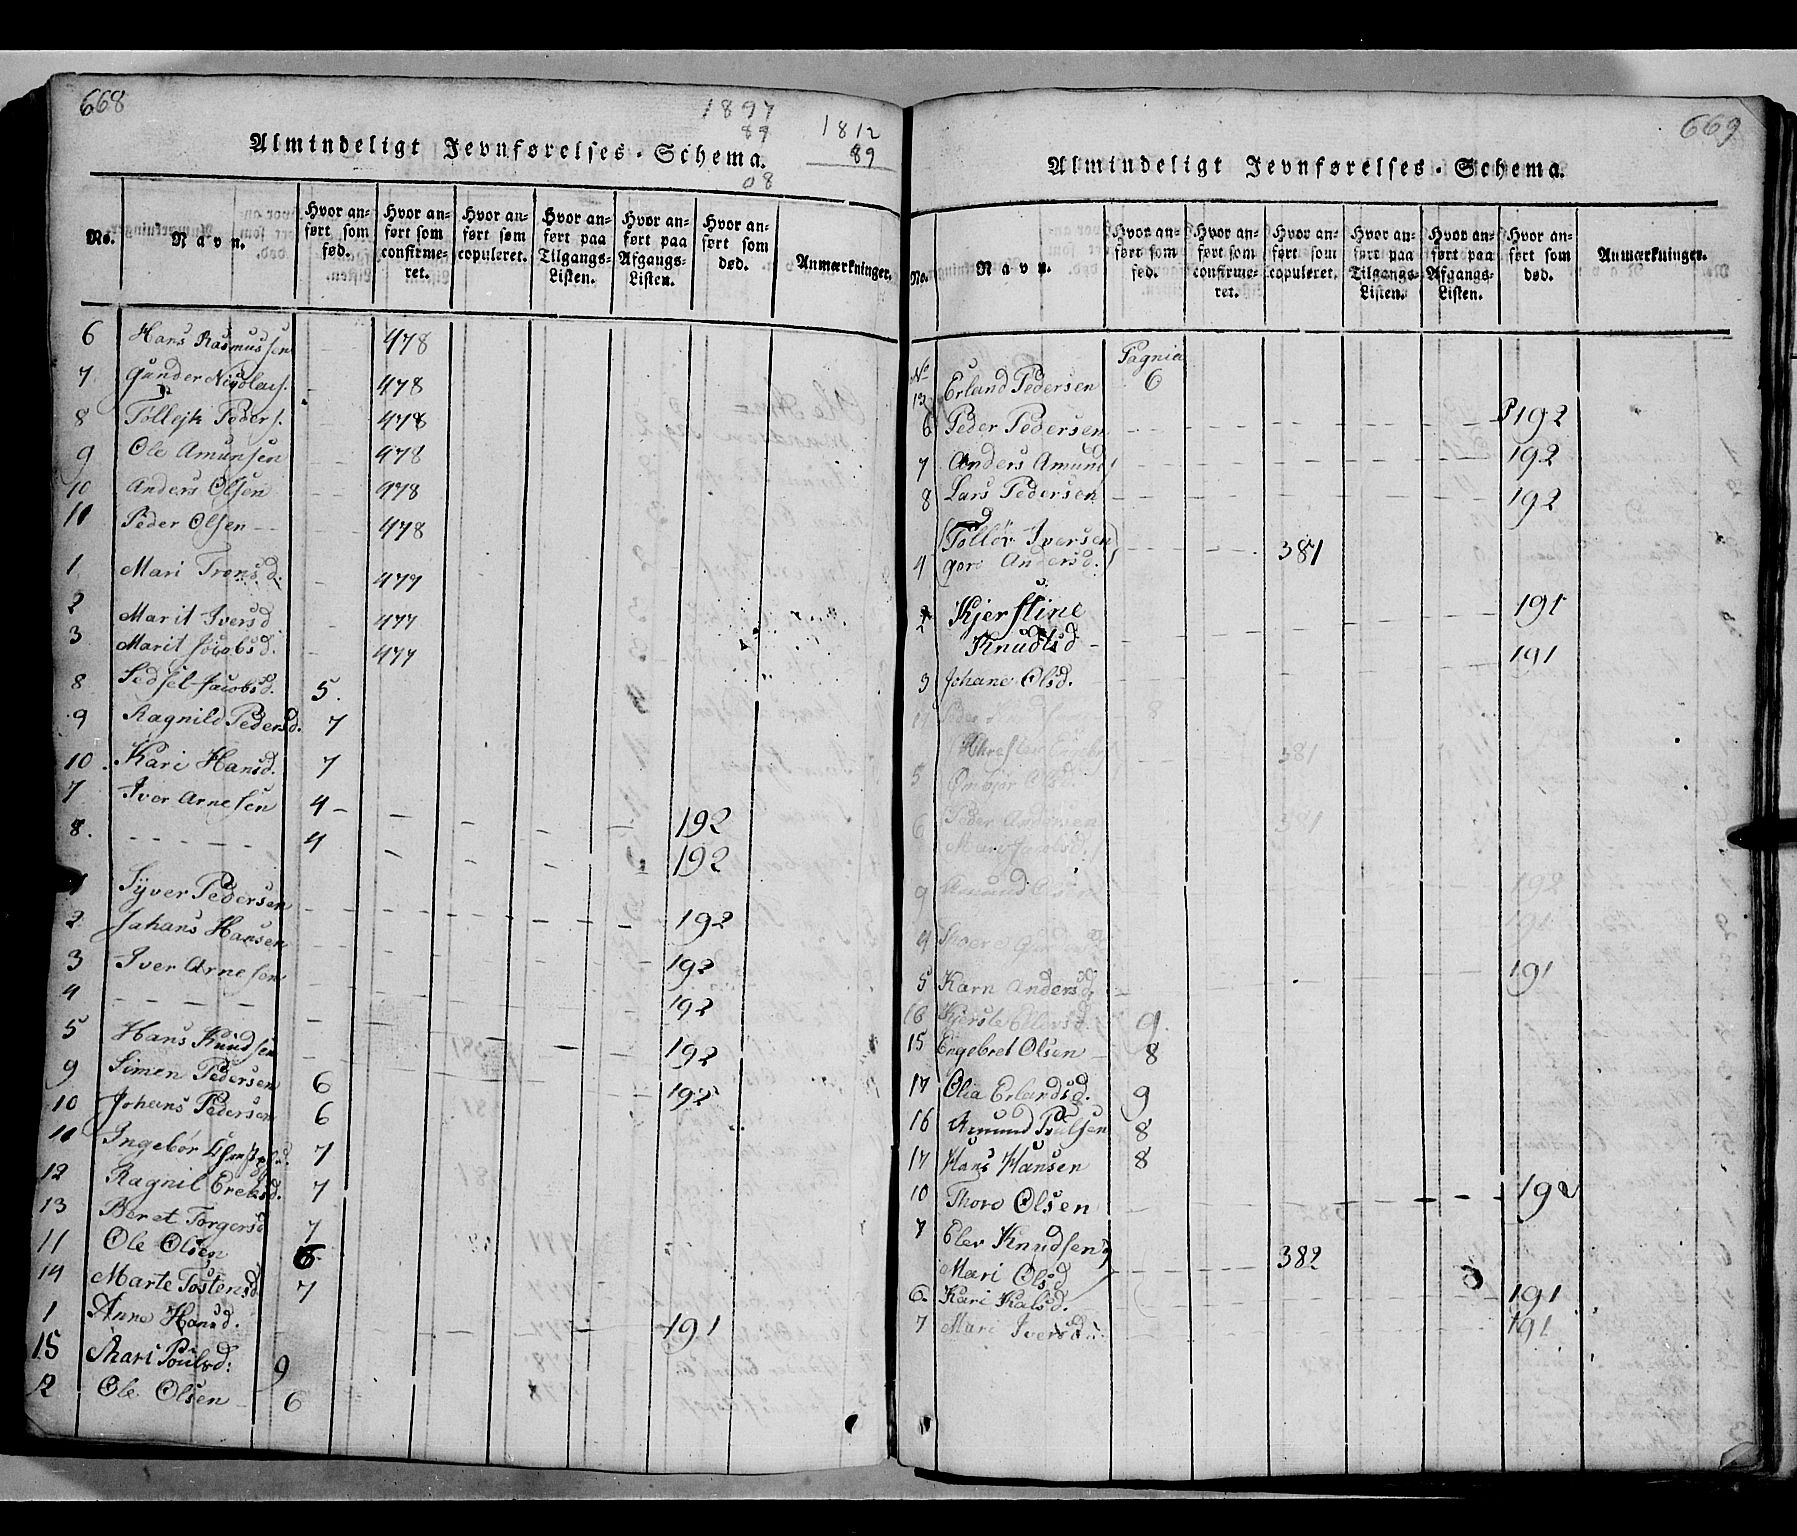 668
1897
89
08
1812
89
Almindeligt Jevnførelses-Schema.
No.
Navn.
Hvor anført som fød.
Hvor anført som confirmeret.
Hvor anført som copuleret.
Hvor anført paa Tilgangs-Listen.
Hvor anført paa Afgangs-Listen.
Hvor anført som død.
Anmærkninger.
6 Hans Rasmussen 478
7 Gunder Nicolays. 478
8 Tollejk Peders. 478
9 Ole Amunsen 478
10 Anders Olsen 478
11 Peder Olsen 478
1 Mari Tronsd. 477
2 Marit Iversd 477
3 Marit Jacobsd. 477
8 Sidsel Jacobsd. 5.
9 Ragnild Pedersd. 7
10 Kari Hansd. 7
7 Iver Arnesen 4 192
8. 4 192
1 Syver Pedersen 192
2 Johans Hansen 192
3 Iver Arnesen 192
4 192
5 Hans Knudsen 192
9 Simen Pedersen 6
10 Johans Pedersen 6
11 Ingebor 7
12 Ragnil Ereksd. 7
13 Beret Torgersd 7
11 Ole Olsen 6
14 Marte Tostensd 7
1 Anne Hansd. 191
15 Mari Poulsd: 9
12 Ole Olsen 6
669
Almindeligt Jevnførelses-Schema.
No.
Navn.
Hvor anført som fød.
Hvor anført som confirmeret.
Hvor anført som copuleret.
Hvor anført paa Tilgangs-Listen.
Hvor anført paa Afgangs-Listen.
Hvor anført som død.
Anmærkninger.
No Pagnia
13 Erland Pedersen 6
6 Peder Pedersen P192
7 Anders Amund 192
8 Lars Pedersen 192
Tollør Iversen
4 Gore Andersd. 381
2 Kjerstine 191
Knudtsd
3 Johane Olsd. 191
11 Peder Knudsen 8
Chresten Engebr 381
5 Olsd.
6 Peder Andersen 381
Mari Jacobsd.
9 Amund Olsen 192
4 191
5 Karn Andersd. 191
16 Kjerste Ellevsd. 9.
15 Engebret Olsen 8
17 Olia Erlandsd. 9
16 Amund Poulsen 8
17 Hans Hansen 8
10 Thore Olsen 192
7 Elev Knudsen
Mari Olsd 382
6. Kari Kalsd. 191
7 Mari Iversd: 191